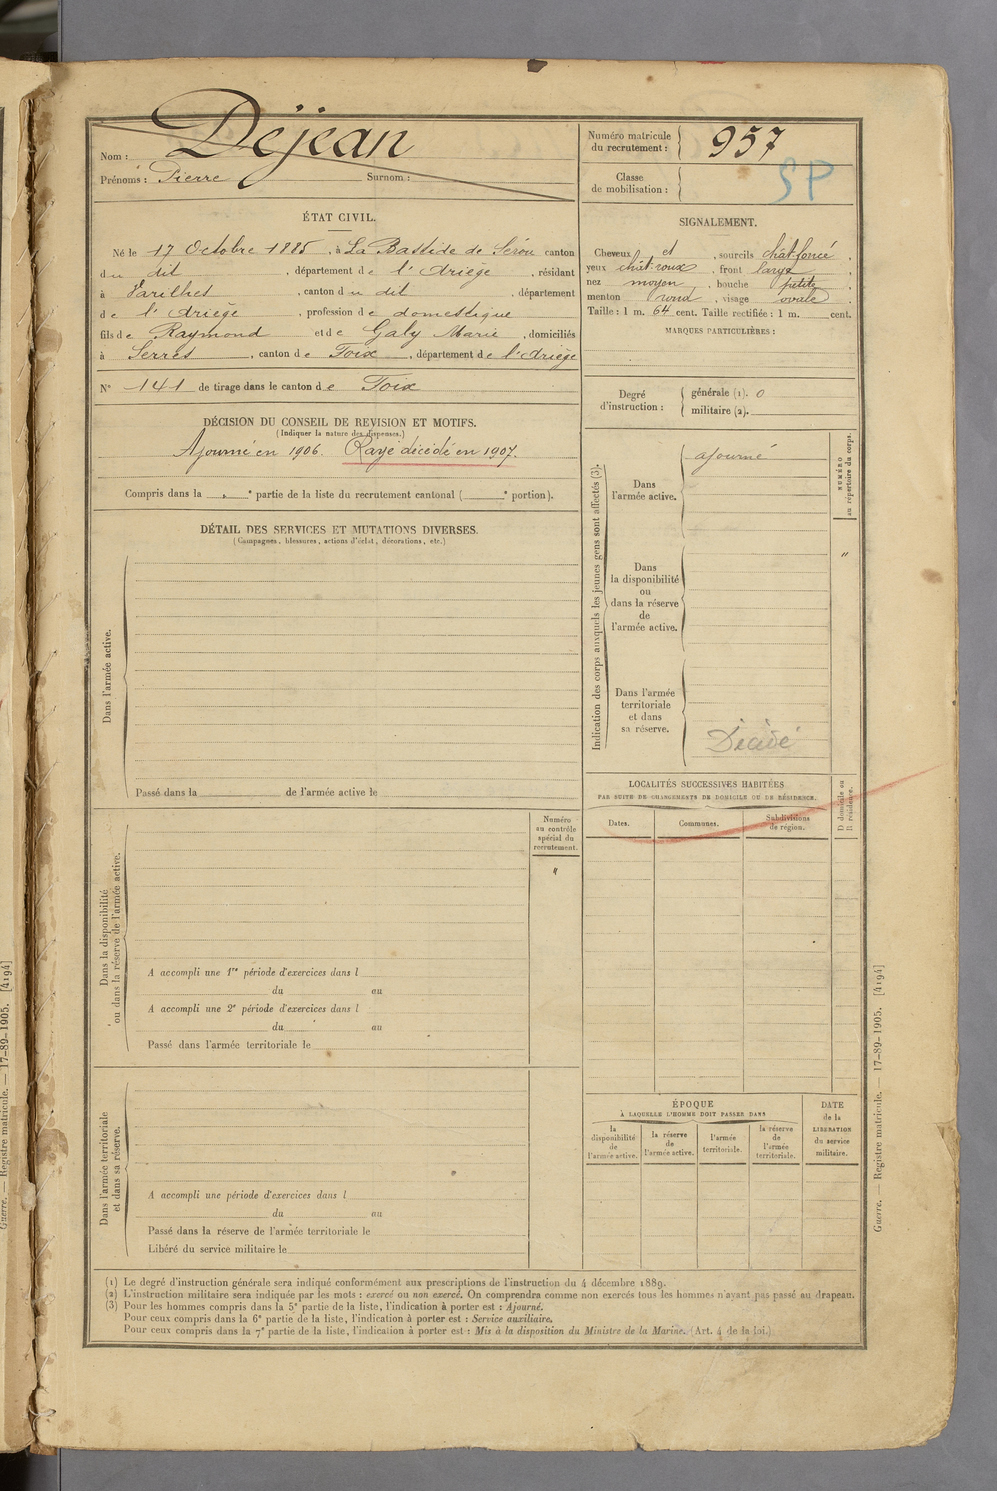 Nom : Déjean
Prénoms : Pierre Surnom :
Numéro matricule du recrutement : 957
Classe de mobilisation :
SP
ÉTAT CIVIL.
Né le 17 Octobre 1885, à La Bastide de Sérou canton
du dit, département de l'Ariège, résidant
à Varilhes, canton du dit, département
de l'Ariège, profession de domestique
fils de Raymond et de Galy Marie, domiciliés
à Serres, canton de Foix, département de l'Ariège
N° 141 de tirage dans le canton de Foix
SIGNALEMENT.
Cheveux et, sourcils chât foncé,
yeux chât roux, front large,
nez moyen, bouche petite,
menton rond, visage ovale.
Taille : 1 m. 64 cent. Taille rectifiée : 1 m. cent.
MARQUES PARTICULIÈRES :
Degré d'instruction : générale (1). 0
militaire (2).
DÉCISION DU CONSEIL DE REVISION ET MOTIFS.
(Indiquer la nature des dispenses.)
Ajourné en 1906. Rayé décédé en 1907.
Compris dans la " e partie de la liste du recrutement cantonal ( e portion).
DÉTAIL DES SERVICES ET MUTATIONS DIVERSES.
(Campagnes, blessures, actions d'éclat, décorations, etc.)
Dans l'armée active.
Passé dans la de l'armée active le
Indication des corps auxquels les jeunes gens sont affectés (3).
Dans l'armée active.
ajourné
NUMÉRO au répertoire du corps.
"
Dans la disponibilité ou dans la réserve de l'armée active.
Dans l'armée territoriale et dans sa réserve.
Décédé
LOCALITÉS SUCCESSIVES HABITÉES
PAR SUITE DE CHANGEMENTS DE DOMICILE OU DE RÉSIDENCE.
D domicile ou R résidence.
Dates. Communes. Subdivisions de région.
Numéro au contrôle spécial du recrutement.
"
Dans la disponibilité ou dans la réserve de l'armée active.
A accompli une 1re période d'exercices dans l
du au
A accompli une 2e période d'exercices dans l
du au
Passé dans l'armée territoriale le
Dans l'armée territoriale et dans sa réserve.
A accompli une période d'exercices dans l
du au
Passé dans la réserve de l'armée territoriale le
Libéré du service militaire le
ÉPOQUE
À LAQUELLE L'HOMME DOIT PASSER DANS
la disponibilité de l'armée active.
la réserve de l'armée active.
l'armée territoriale.
la réserve de l'armée territoriale.
DATE de la LIBÉRATION du service militaire.
(1) Le degré d'instruction générale sera indiqué conformément aux prescriptions de l'instruction du 4 décembre 1889.
(2) L'instruction militaire sera indiquée par les mots : exercé ou non exercé. On comprendra comme non exercés tous les hommes n'ayant pas passé au drapeau.
(3) Pour les hommes compris dans la 5e partie de la liste, l'indication à porter est : Ajourné.
Pour ceux compris dans la 6e partie de la liste, l'indication à porter est : Service auxiliaire.
Pour ceux compris dans la 7e partie de la liste, l'indication à porter est : Mis à la disposition du Ministre de la Marine. (Art. 4 de la loi.)
Guerre. — Registre matricule. — 17-89-1905. [4194]
Guerre. — Registre matricule. — 17-89-1905. [4194]